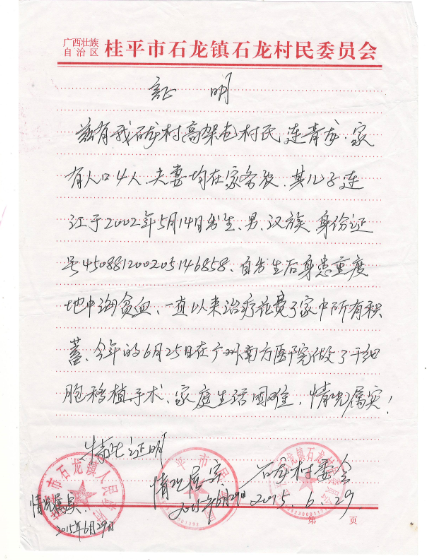 广西壮族
自治区 桂平市石龙镇石龙村民委员会
证 明
兹有我石龙村高架屯村民, 连青龙, 家
有人口4人, 夫妻均在家务农, 其儿子连
江于2002年5月14日出生、男、汉族, 身份证
号450881200205146858、自出生后身患重度
地中海贫血、一直以来治疗花费了家中所有积
蓄、今年的6月25日在广州南方医院做了干细
胞移植手术、家庭生活困难, 情况属实!
特此证明
情况属实 石龙村委会
2015年6月29日 2015 6 29
情况属实
2015年6月29日
第 页